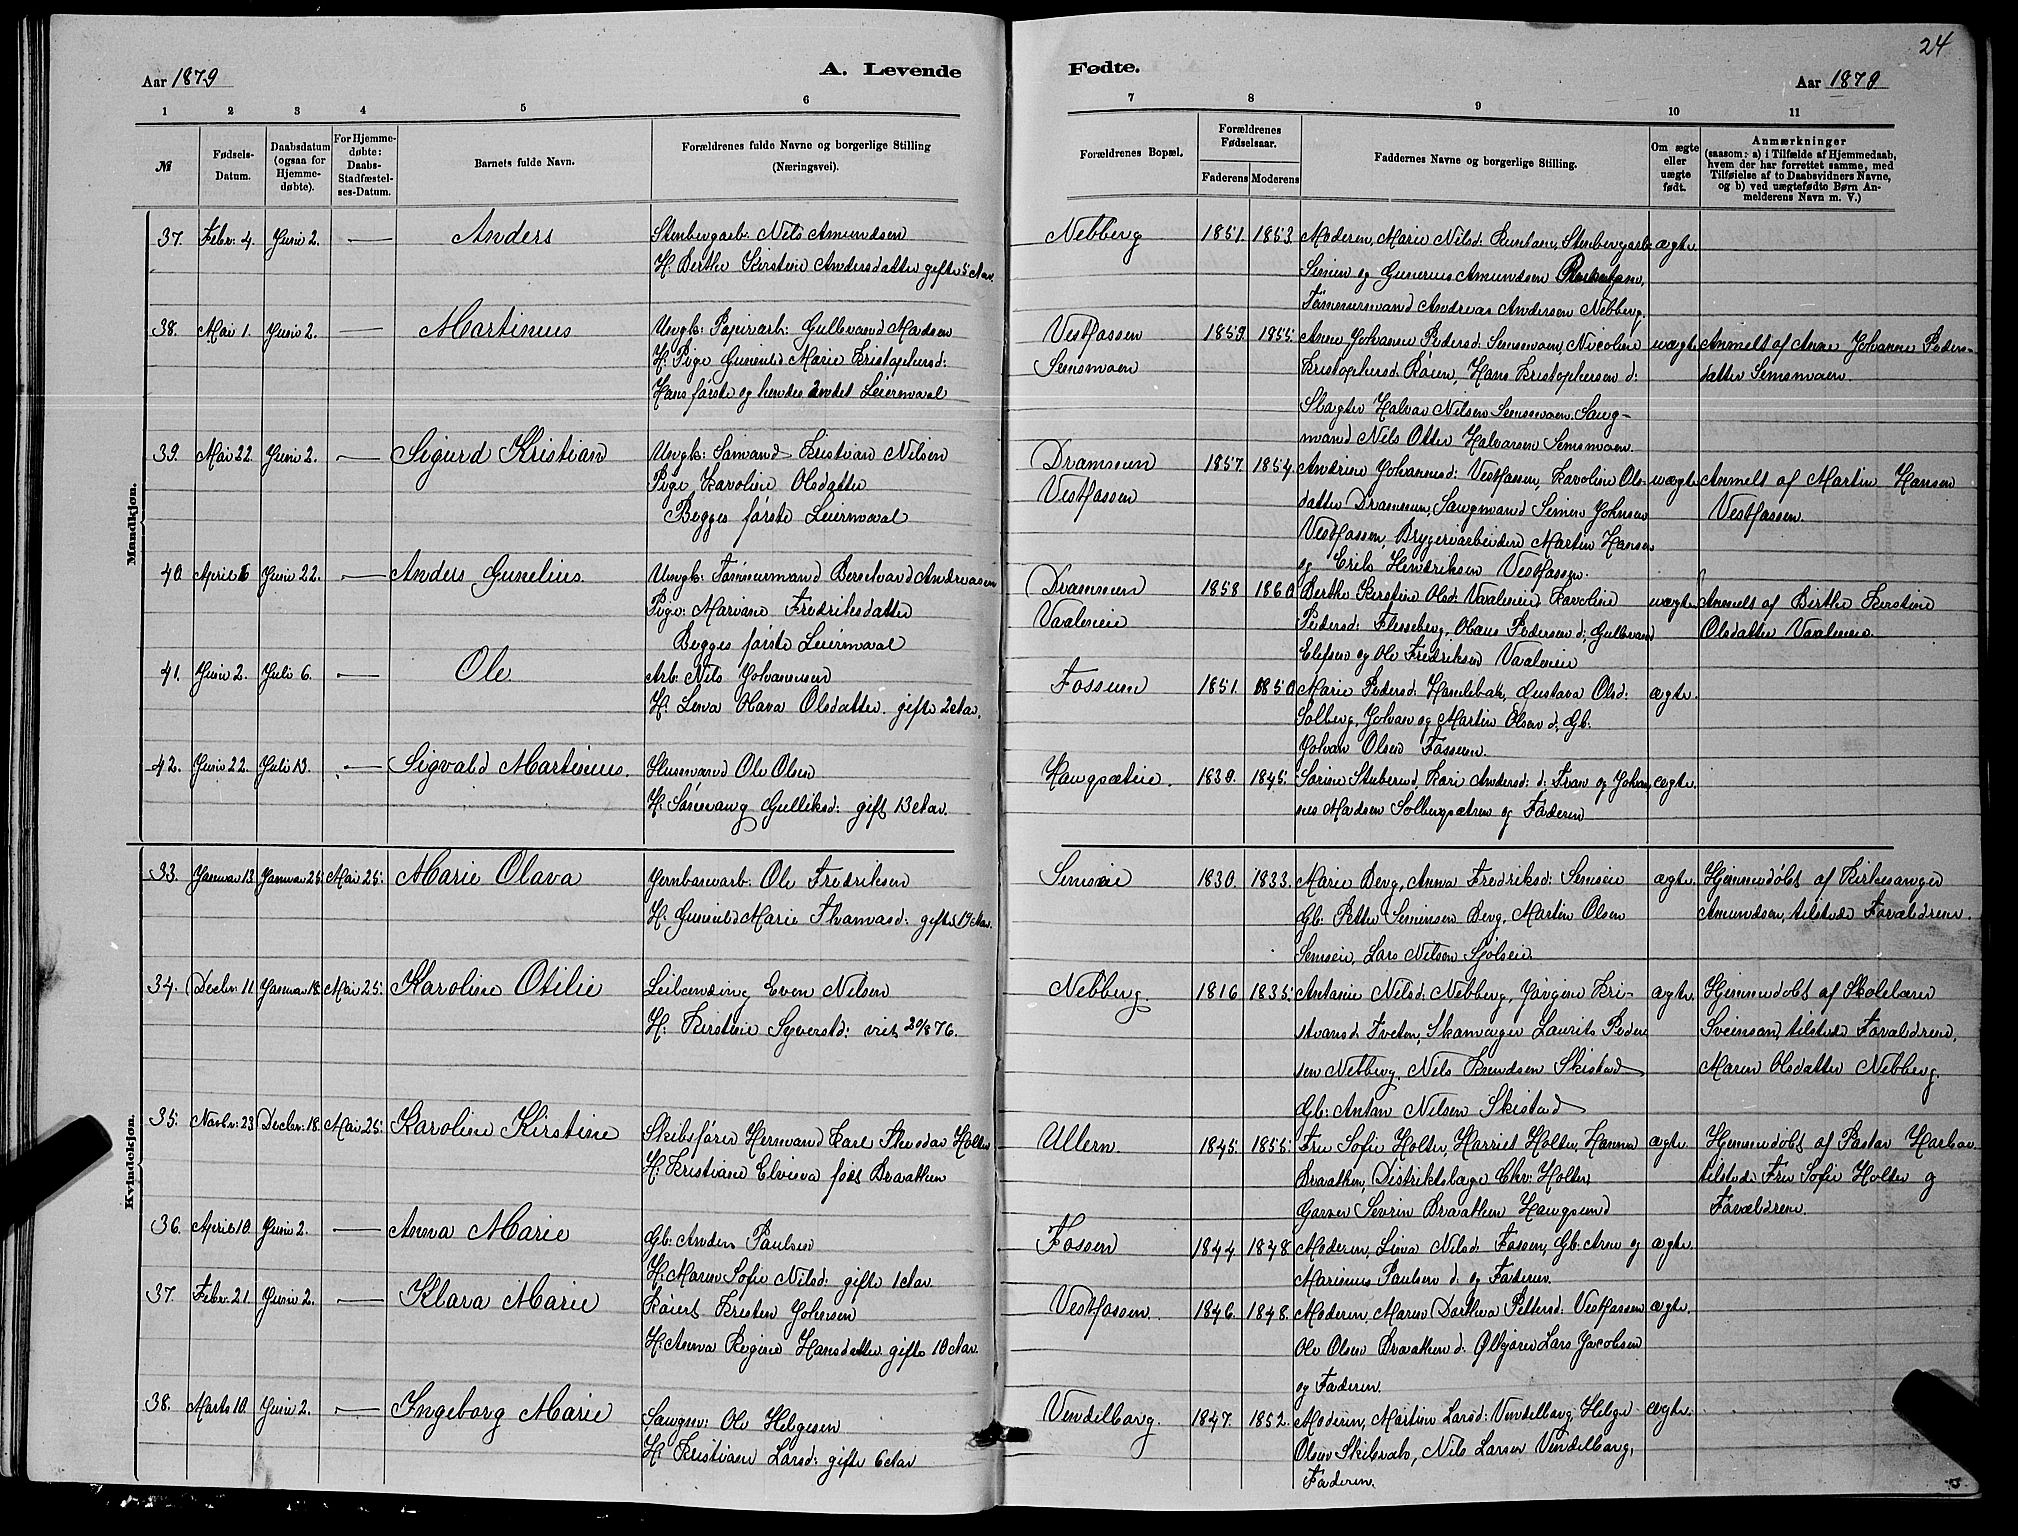 24
Aar 1879
A. Levende
Fødte.
Aar 1879
1 2 3 4 5 6 7 8 9 10 11
№
Fødsels-
Datum.
Daabsdatum
(ogsaa for
Hjemme-
døbte).
For Hjemme-
døbte:
Daabs-
Stadfæstel-
ses-Datum.
Barnets fulde Navn.
Forældrenes fulde Navne og borgerlige Stilling
(Næringsvei).
Forældrenes Bopæl.
Forældrenes
Fødselsaar.
Faderens Moderens
Faddernes Navne og borgerlige Stilling.
Om ægte
eller
uægte
født.
Anmærkninger
(saasom: a) i Tilfælde af Hjemmedaab,
hvem der har forrettet samme, med
Tilføielse af to Daabsvidners Navne,
og b) ved uægtefødte Børn An-
melderens Navn m. V.)
Mandkjøn.
37. Febr. 4. Juni 2. — Anders
Stenbergarb: Nils Amundsen
H. Berthe Kirstine Andersdatter gifte 5 Aar.
Nebberg 1851. 1853.
Moderen, Marie Nilsd: Stenbergarb:
Simen og Gunerius Amundsen
Tømmermand Andreas Andersen Nebberg.
ægte
38. Mai 1. Juni 2. — Martinius
Ungk: Papirarb: Gullevand Madsen
H. Pige Gunild Marie Kristophersd:
Hans første og hendes andet Leiermaal
Vestfossen
Semsmoen
1859. 1855.
Anne Johanne Pedersd: Semsmoen, Nicoline
Kristophersd: Røien, Hans Kristophersen d:
Slagter Halvor Nilsen Semsmoen. Saug-
mand Nils Otter Halvorsen Semsmoen.
uægte
Anmelt af Anne Johanne Peders-
datter Semsmoen.
39. Mai 22. Juni 2. — Sigurd Kristian
Ungk: Sømand Kristian Nilsen
Pige Karoline Olsdatter
Begges første Leiermaal
Drammen
Vestfossen
1857. 1854.
Andrine Johannesd: Vestfossen, Karoline Ols-
datter Drammen, Saugmand Simen Johnsen
Vestfossen, Bryggeriarbeidere Martin Hansen
og Erik Hendriksen Vestfossen.
uægte
Anmelt af Martin Hansen
Vestfossen.
40. April 6 Juni 22. — Anders Gunelius.
Ungk: Tømmermand Berntvard Andreasen
Pige: Mariane Fredriksdatter
Begges første Leiermaal
Drammen
Vaalineie
1858 1860
Berthe Kirstine Olsd: Vaalineie, Karoline
Pedersd: Flesseberg, Olaus Pedersen d: Gullevand
Elefsen og Ole Fredriksen Vaalineie
uægte
Anmelt af Berthe Kirstine
Olsdatter Vaalineie.
41. Juni 2. Juli 6. — Ole
Arb. Nils Johannesen
H. Lena Olava Olsdatter. gifte 2 Aar.
Fossum 1851. 1850
Marie Pedersd: Hamlebak, Gustava Olsd:
Solberg, Johan og Martin Olsen d. Gb.
Johan Olsen Fossum.
ægte.
42. Juni 22. Juli 13. — Sigvald Martinius.
Husmand Ole Olsen
H. Sørenaug Gulliksd: gift 13 Aar.
Haugsæteie. 1839. 1845.
Sørine Stuberud, Kari Andersd: d: Fran og Johan-
nes Madsen Solbergsætren og Faderen
ægte.
Kvindekjøn.
33. Januar 13. Januar 25. Mai 25. Marie Olava
Jernbanearb: Ole Fredriksen
H. Gunild Marie Thomasd: gifte 19 Aar.
Semseie 1830. 1833.
Marie Berg, Anna Fredriksd: Semseie
Gb. Petter Simensen Berg, Martin Olsen
Semseie, Lars Nilsen Sjolseie.
ægte.
Hjemmedøbt af Kirkesanger
Amundsen, tilstede Forældrene.
34. Decbr. 11. Januar 18. Mai 25. Karoline Otilie
Leilænding Even Nilsen
H. Kirstine Syverstd: viet 20/8 76.
Nebberg. 1816 1835.
Antonie Nilsd: Nebberg, Jørgine Kri-
stiansd: Tveten, Skomager Laurits Peder-
sen Nebberg, Nils Knudsen Skistad
Gb: Anton Nilsen Skistad
ægte.
Hjemmedøbt af Skolelærer
Svensson, tilstede Forældrene,
Maren Olsdatter Nebberg.
35. Novbr. 23 Decbr. 18. Mai 25. Karoline Kirstine
Skibsfører Herman Karl Theodor Holter
H. Kristiane Elvina født Braathen
Ullern. 1845. 1855.
Fru Sofie Holter, Harriet Holter, Hanna
Braathen, Distriktslæge Chr. Holter
Garver Severin Braathen Haugsund
ægte
Hjemmedøbt af Pastor Harboe
tilstede Fru Sofie Holter og
Forældrene.
36. April 10. Juni 2. — Anna Marie
Gb: Anders Paulsen
H. Maren Sofie Nilsd: gifte 1 Aar.
Fossen 1844 1848
Moderen, Lina Nilsd: Fossen, Gb: Arne og
Marinius Paulsen d. og Faderen.
ægte.
37. Febr. 21. Juni 2. — Klara Marie
Røiert Kristen Johnsen
H. Anna Regine Hansdatter. gifte 10 Aar.
Vestfossen. 1846. 1848.
Moderen, Maren Dorthea Pettersd: Vestfossen
Ole Olsen Braathen d. Ølkjører Lars Jacobsen
og Faderen.
ægte.
38. Marts 10. Juni 2. — Ingeborg Marie
Saugsv: Ole Helgesen
H. Kristiane Larsd: gifte 6 Aar
Vendelborg. 1847. 1852.
Moderen, Martine Larsd: Vendelborg, Helge
Olsen Skilsvab, Nils Larsen Vendelborg,
Faderen.
ægte.